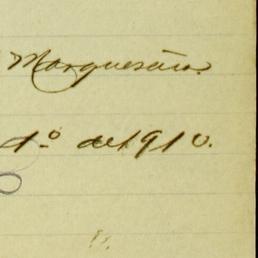 Marquesano.
1º de 1910.